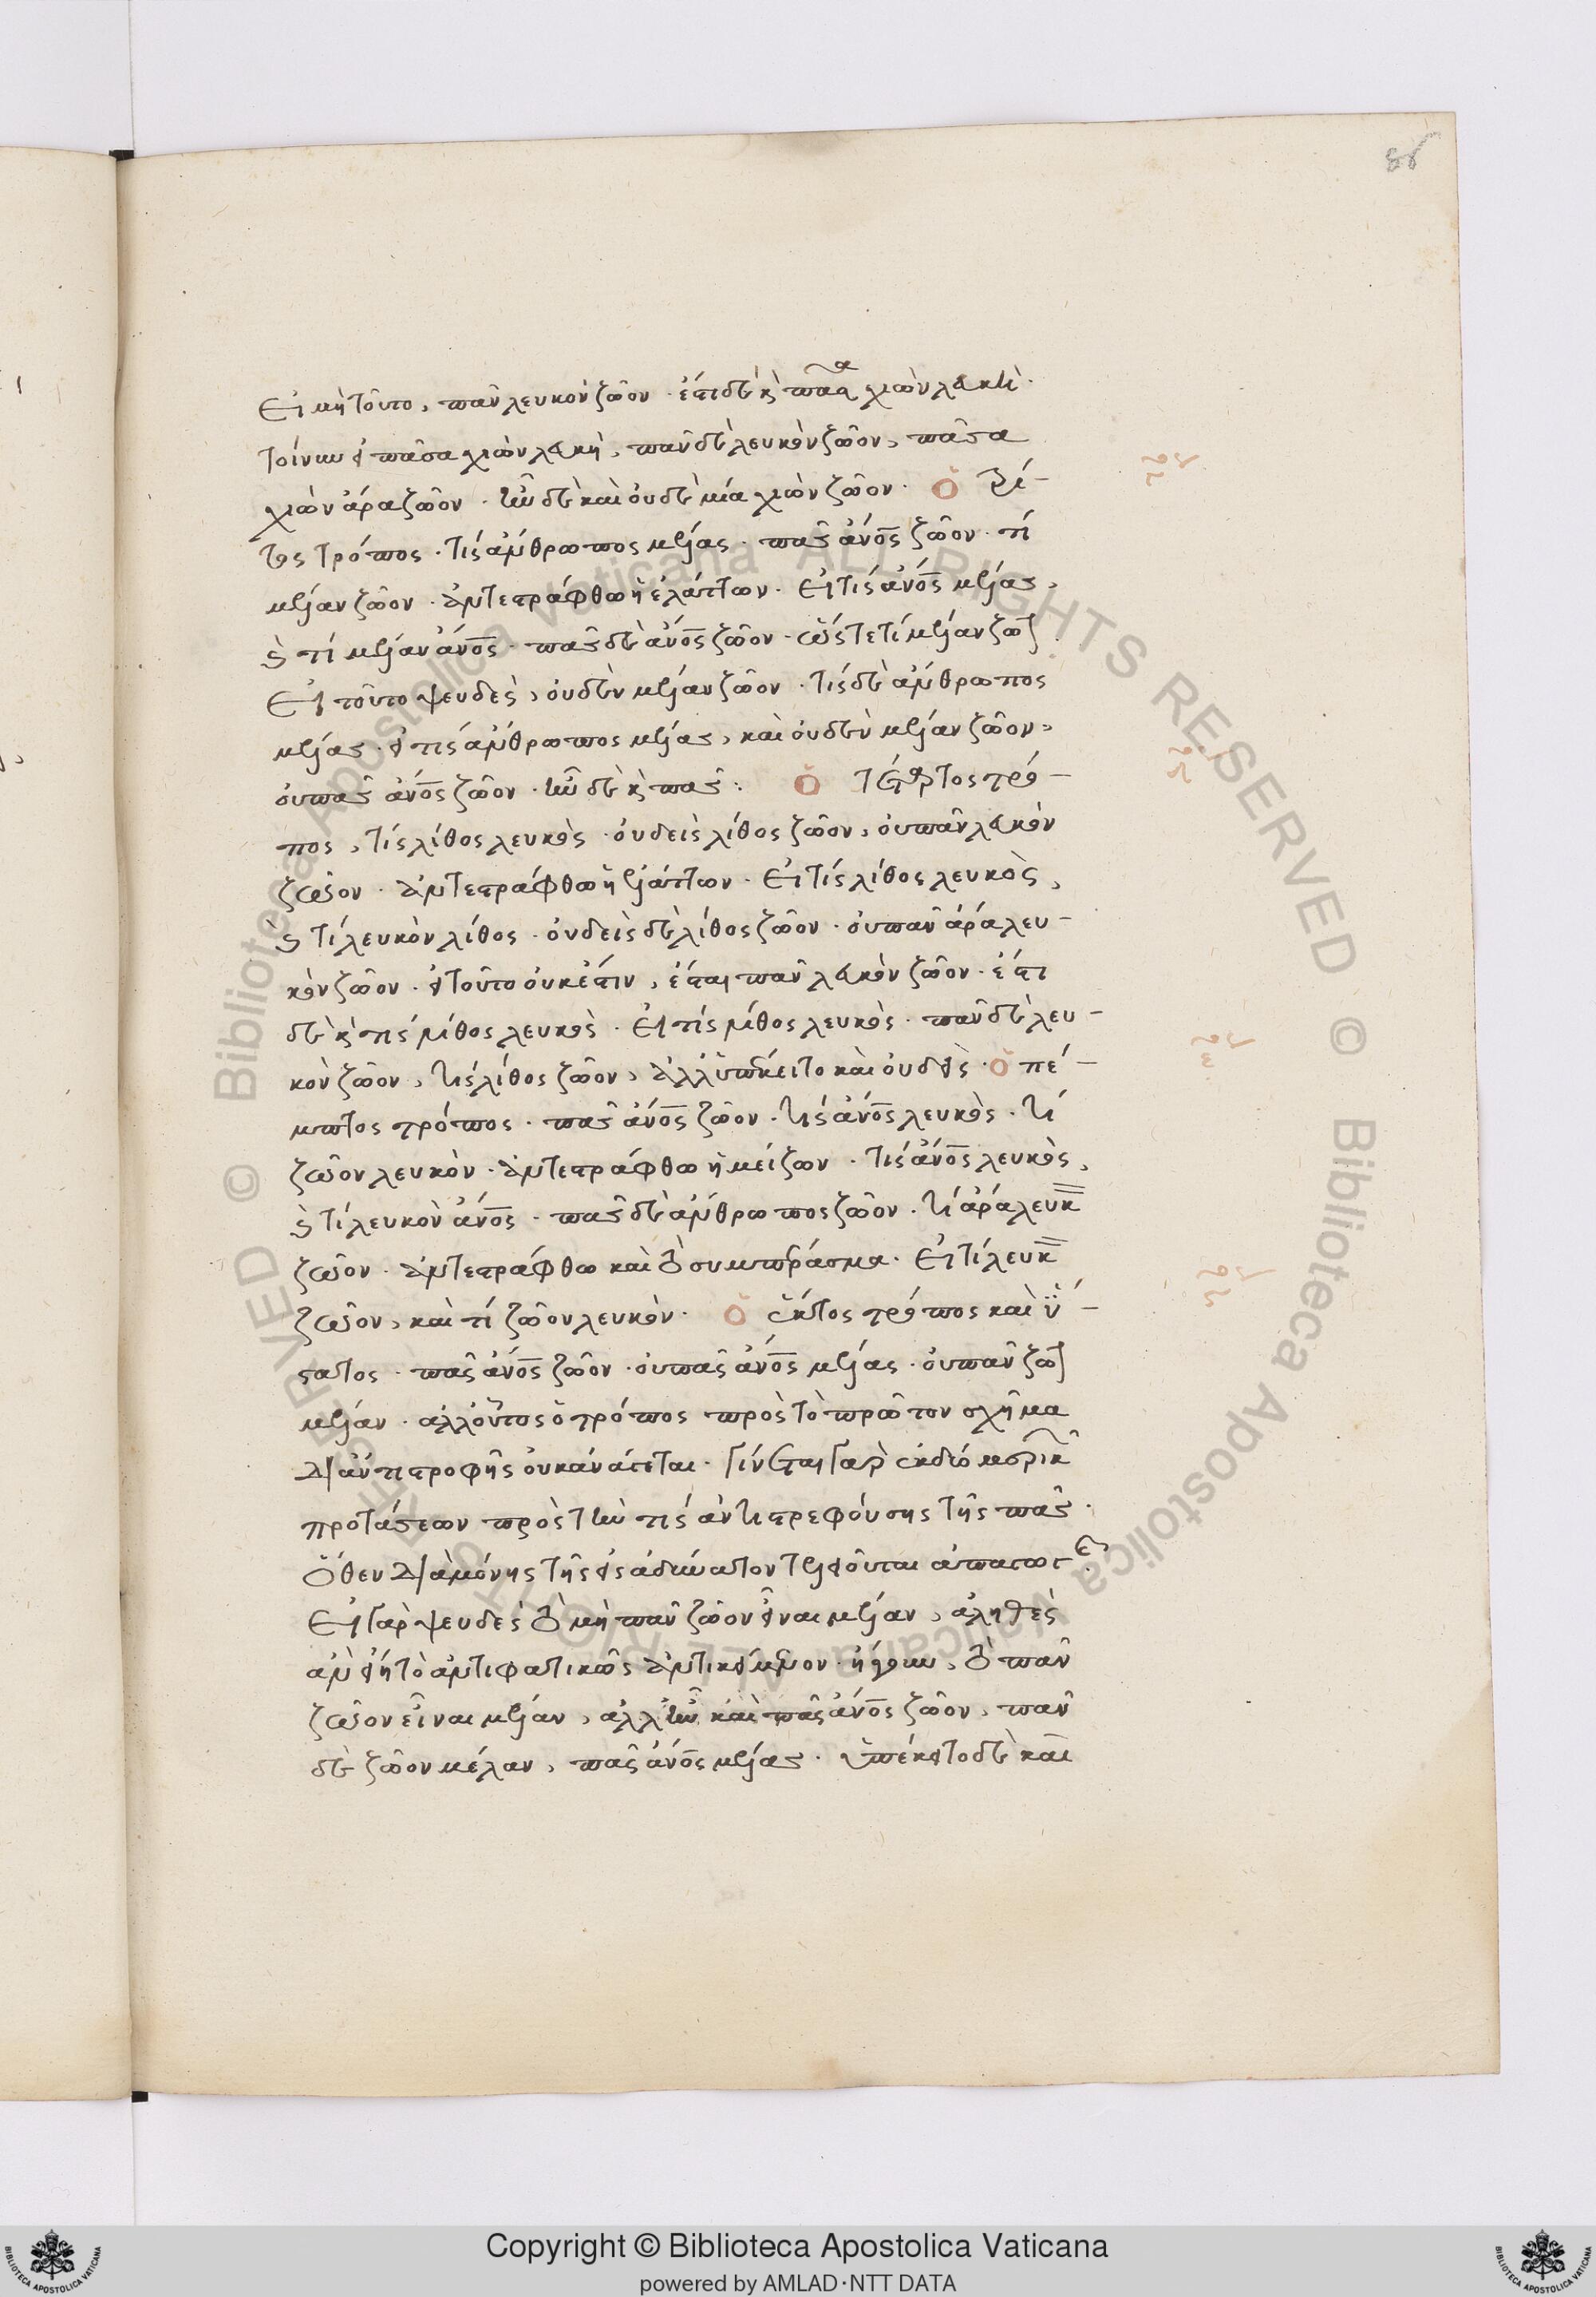 εἰ μὴ τοῦτο, πᾶν λευκὸν ζῶον· ἔστι δὲ κ πᾶσα χιὼν λευκή·
τοίνυν εἰ πᾶσα χιὼν λευκὴ, πᾶν δὲ λευκὸν ζῶον, πᾶσα
χιὼν ἄρα ζῶον· ἦν δὲ καὶ οὐδὲ μία χιὼν ζῶον· ὁ τρί-
τος τρόπος· τίς ἄνθρωπος μέλας· πᾶς ἄνος ζῶον· τί
μέλαν ζῶον· ἀντεστράφθω ἡ ἐλάττων· εἰ τίς ἄνος μέλας,
κ τί μέλαν ἄνος· πᾶς δὲ ἄνος ζῶον· ὥστε τί μέλαν ζῶον
εἰ τοῦτο ψευδὲς, οὐδὲν μέλαν ζῶον· τίς δὲ ἄνθρωπος
μέλας· εἰ τίς ἄνθρωπος μέλας, καὶ οὐδὲν μέλαν ζῶον,
οὐ πᾶς ἄνος ζῶον· ἦν δὲ κ πᾶς: ὁ τέταρτος τρό-
πος, τίς λίθος λευκὸς· οὐδεὶς λίθος ζῶον, οὐ πᾶν λευκὸν
ζῶον· ἀντεστράφθω ἡ ἐλάττων· εἰ τίς λίθος λευκὸς,
κ τί λευκὸν λίθος· οὐδεὶς δὲ λίθος ζῶον· οὐ πᾶν ἄρα λευ-
κὸν ζῶον· εἰ τοῦτο οὐκ ἔστιν, ἔσται πᾶν λευκὸν ζῶον· ἔστι
δὲ κ τίς λίθος λευκὸς· εἰ τίς λίθος λευκὸς· πᾶν δὲ λευ-
κὸν ζῶον, τίς λίθος ζῶον, ἀλλ' ὑπέκειτο καὶ οὐδεὶς· ὁ πέ-
μπτος τρόπος· πᾶς ἄνος ζῶον· τίς ἄνος λευκὸς· τί
ζῶον λευκὸν· ἀντεστράφθω ἡ μείζων· τίς ἄνος λευκὸς,
κ τί λευκὸν ἄνος· πᾶς δὲ ἄνθρωπος ζῶον· τί ἄρα λευκ
ζῶον· ἀντεστράφθω καὶ τὸ συμπέρασμα· εἰ τί λευκ
ζῶον, καὶ τί ζῶον λευκὸν· ὁ ἕκτος τρόπος καὶ ὕ-
στατος· πᾶς ἄνος ζῶον· οὐ πᾶς ἄνος μέλας· οὐ πᾶν ζῶον
μέλαν· ἀλλ' οὗτος ὁ τρόπος πρὸς τὸ πρῶτον σχῆμα
δι' ἀντιστροφῆς οὐκ ἀνάγεται· γίνεται γὰρ ἐκ δύο μερικ
προτάσεων πρὸς τὴν τίς ἀντιστρεφούσης τῆς πᾶς·
ὅθεν διὰ μόνης τῆς εἰς ἀδύνατον τελειοῦται ἀπαγωγῆς·
εἰ γὰρ ψευδὲς τὸ μὴ πᾶν ζῶον εἶναι μέλαν, ἀληθὲς
ἂν εἴη τὸ ἀντιφατικῶς ἀντικείμενον· ἤγουν, τὸ πᾶν
ζῶον εἶναι μέλαν, ἀλλ' ἦν καὶ πᾶς ἄνος ζῶον, πᾶν
δὲ ζῶον μέλαν, πᾶς ἄνος μέλας· ὑπέκειτο δὲ καὶ
Copyright © Biblioteca Apostolica Vaticana
powered by AMLAD·NTT DATA